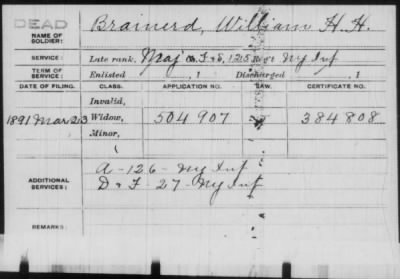 DEAD
NAME OF SOLDIER: Brainerd, William H. H.
SERVICE: Late rank, Maj F&S, 125 Reg't Ny Inf
TERM OF SERVICE: Enlisted , 1 Discharged , 1
DATE OF FILING. CLASS. APPLICATION NO. LAW. CERTIFICATE NO.
Invalid,
1891 Mar 23 Widow, 504 907 384 808
Minor,
ADDITIONAL SERVICES: A - 126 - Ny Inf
D & F - 27 - Ny Inf
REMARKS: